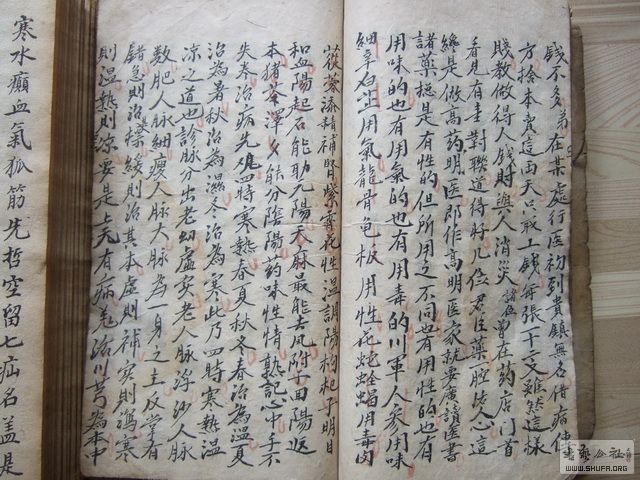 錢不多弟在某處行医初到貴鎮無名借病傳
方捨本賣這両天只取工錢每張二十二文雖然這樣
賤教做得人錢財與人消災諸位曾在药店门首
看見有
對聯道得好几位君臣薬一腔
人心這
總是做高药明医即作高明医家就要廣讀医書
諸薬總是有性的但所用之不同也有用性的也有
用味的也有用氣的也有用毒的川軍人参用味
細辛白芷用氣龍骨龟板用性花蛇
用毒肉
茯苓添精補腎紫霄花性温調陽枸杞子明目
和血陽起石能助元陽天麻最能去風附子回陽返
本猪苓澤㵼能分陰陽药味性情熟記心中手不
失拳治病先
四時寒熱春夏秋冬春治為温夏
治為暑秋治為濕冬治為寒此乃四時寒熱温
凉之道也診脉分出老幼虛实老人脉浮
人脉
数肥人脉細瘦人脉大脉為一身之主反掌有
錯急則治其標緩則治其本虛則補实則瀉寒
則温熱則凉要是上天有病
治川芎為本中
寒水癲血氣狐筋先哲空留七疝名盖是
书法公社
WWW.SHUFA.ORG